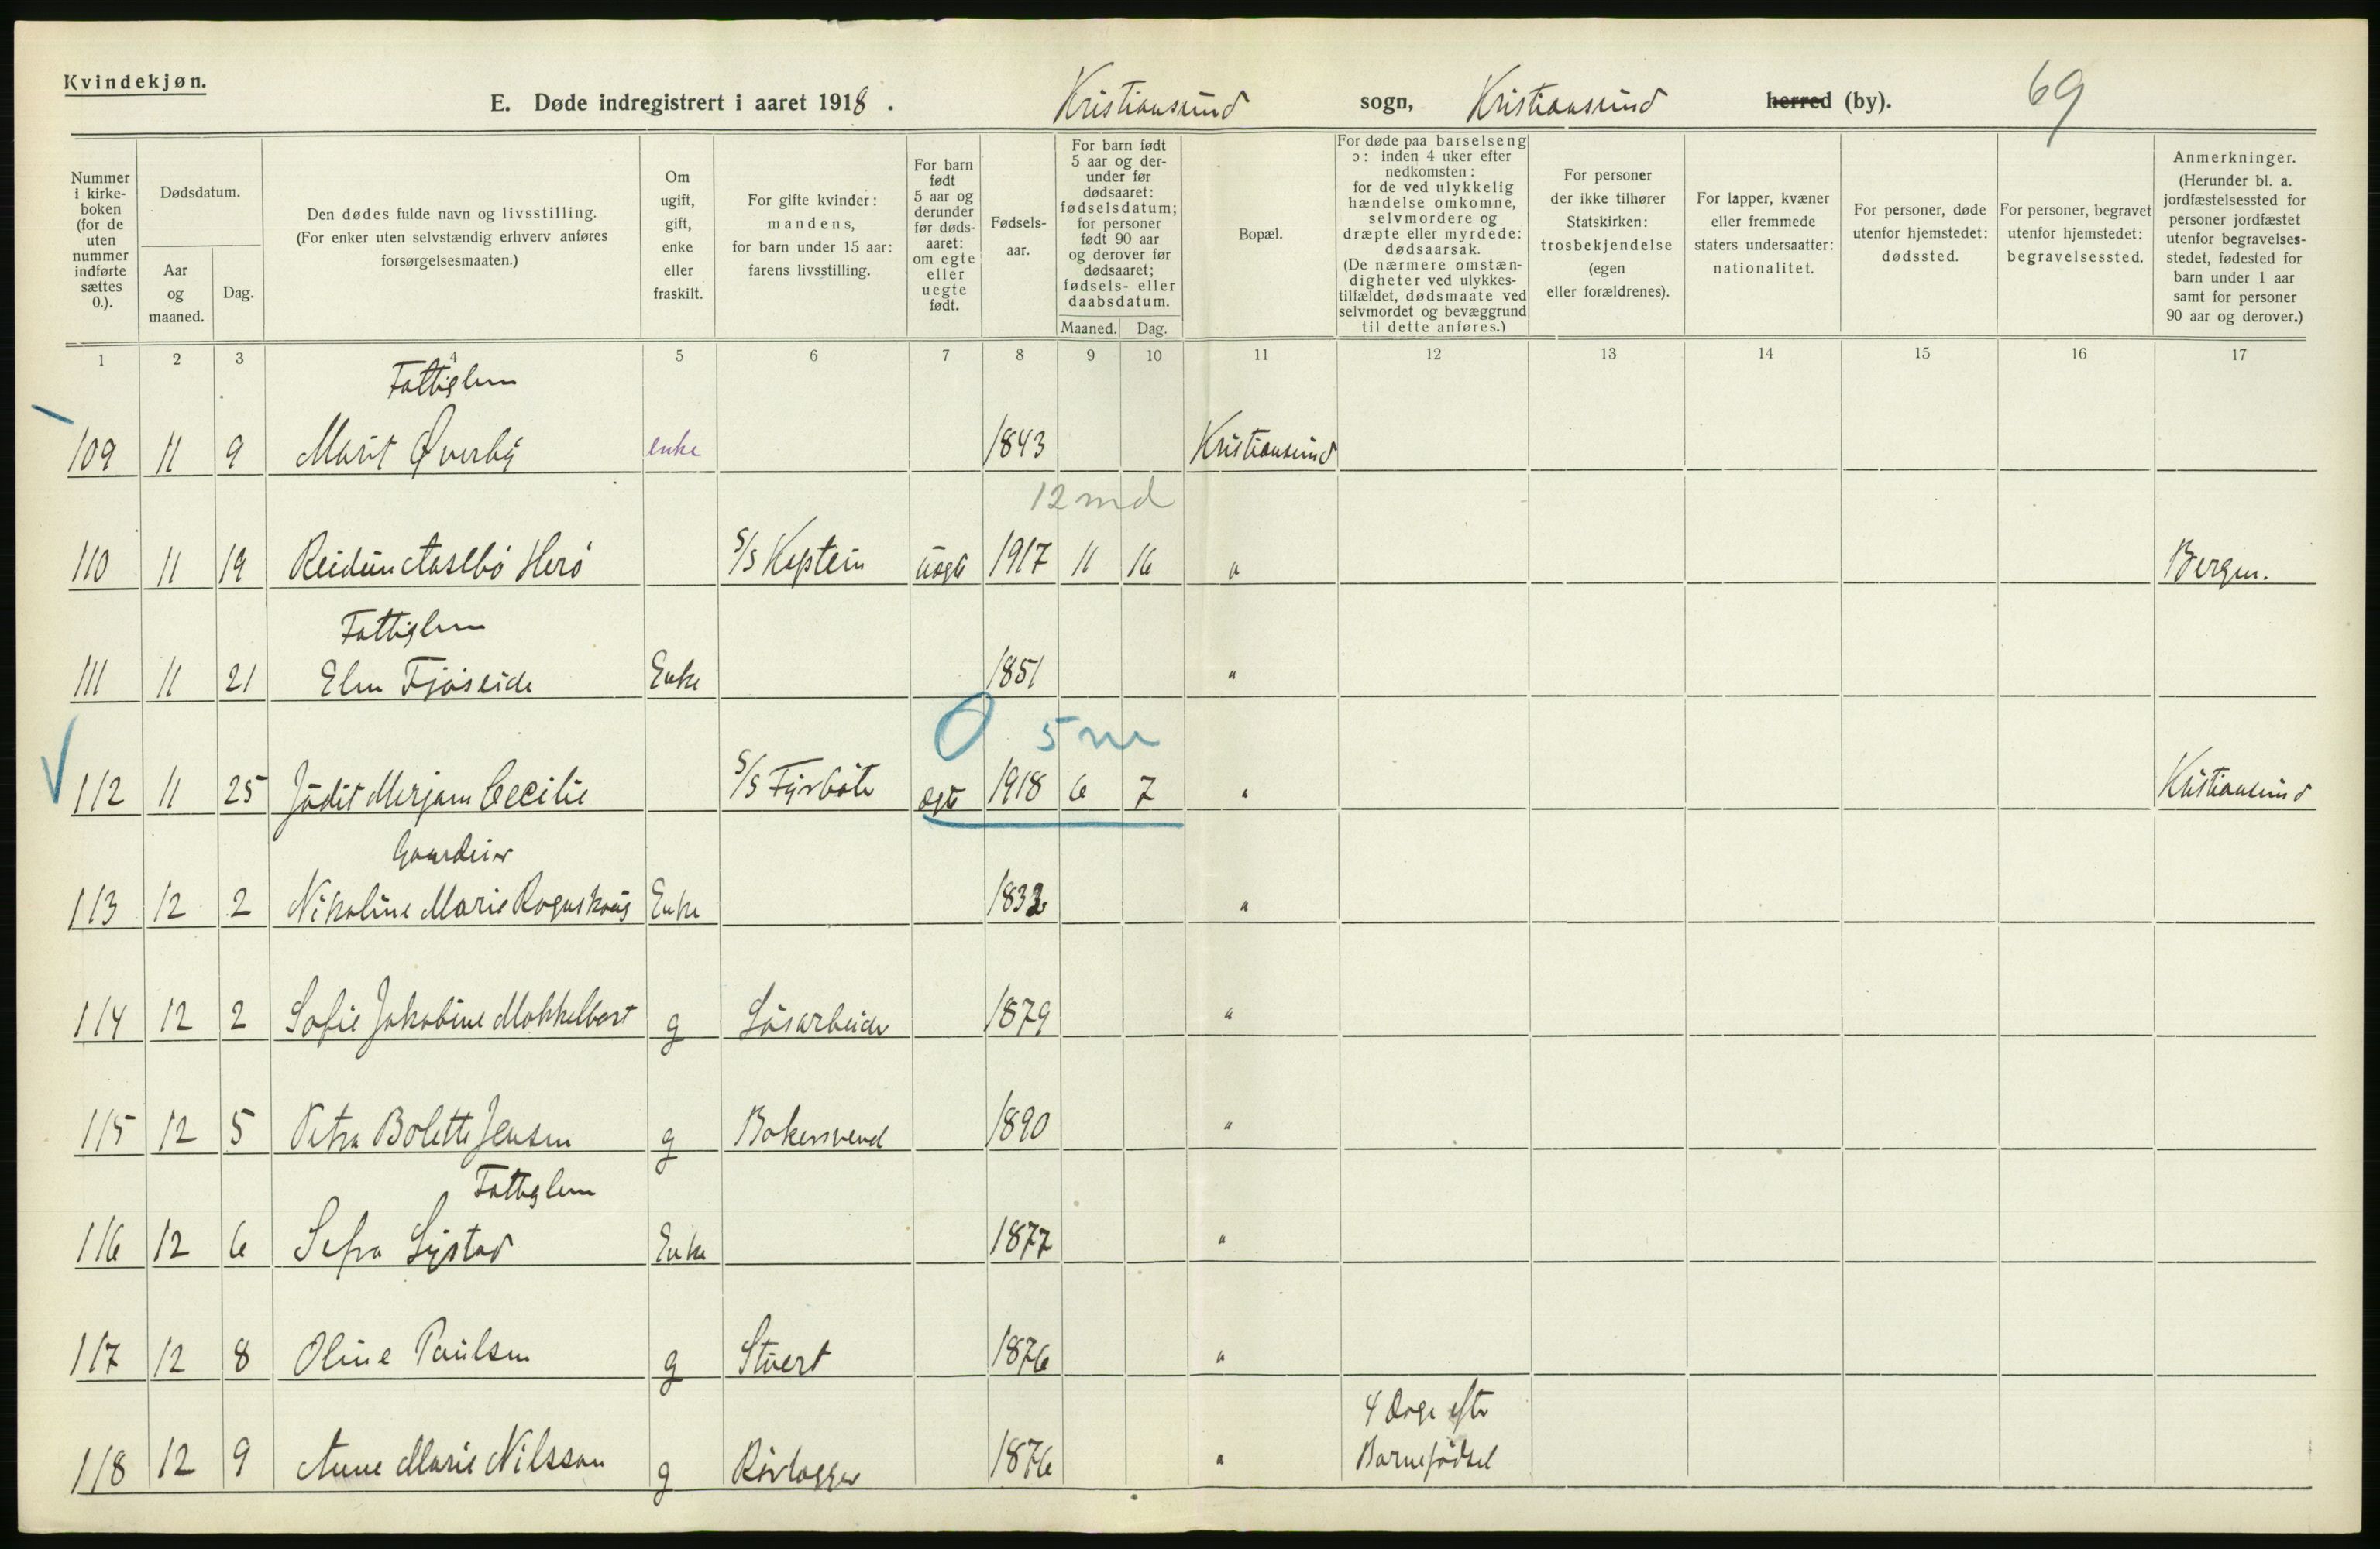 Kvindekjøn.
E. Døde indregistrert i aaret 1918. Kristiansund sogn, Kristiansund herred (by). 69
Nummer i kirkeboken (for de uten nummer indførte sættes 0.).
Dødsdatum.
Aar og maaned.
Dag.
Den dødes fulde navn og livsstilling.
(For enker uten selvstændig erhverv anføres
forsørgelsesmaaten.)
Om ugift, gift, enke eller fraskilt.
For gifte kvinder: mandens, for barn under 15 aar: farens livsstilling.
For barn født 5 aar og derunder før dødsaaret: om egte eller uegte født.
Fødselsaar.
For barn født 5 aar og derunder før dødsaaret: fødselsdatum; for personer født 90 aar og derover før dødsaaret; fødsels- eller daabsdatum.
Maaned. Dag.
Bopæl.
For døde paa barselseng ɔ: inden 4 uker efter nedkomsten: for de ved ulykkelig hændelse omkomne, selvmordere og dræpte eller myrdede: dødsaarsak. (De nærmere omstændigheter ved ulykkestilfældet, dødsmaate ved selvmordet og bevæggrund til dette anføres.)
For personer der ikke tilhører Statskirken: trosbekjendelse (egen eller forældrenes).
For lapper, kvæner eller fremmede staters undersaatter: nationalitet.
For personer, døde utenfor hjemstedet: dødssted.
For personer, begravet utenfor hjemstedet: begravelsessted.
Anmerkninger. (Herunder bl. a. jordfæstelsessted for personer jordfæstet utenfor begravelsesstedet, fødested for barn under 1 aar samt for personer 90 aar og derover.)
1 2 3 4 5 6 7 8 9 10 11 12 13 14 15 16 17
Fattiglem
109 11 9 Marit Øverby enke 1843 Kristiansund
12 md
110 11 19 Reidun Aasebø Herø S/S Kaptein uegte 1917 11 16 " Bergen.
Fattiglem
111 11 21 Elen Fjøseide Enke 1851 "
0 5 m
112 11 25 Judit Merjam Cecilie S/S Fyrbøter egte 1918 6 7 " Kristiansund
113 12 2 Nikoline Marie Enke "
114 12 2 Sofie Jakobine Mokkelbost g Løsarbeider 1879 "
115 12 5 Petra Bolette Jensen g Bakersvend 1890 "
Fattiglem
116 12 6 Sefra Systad Enke 1877 "
117 12 8 Oline Paulsen g Stuert 1876 "
4 Dage efter
118 12 9 Anne Marie Nilsson g Rørlægger 1876 " Barnefødsel